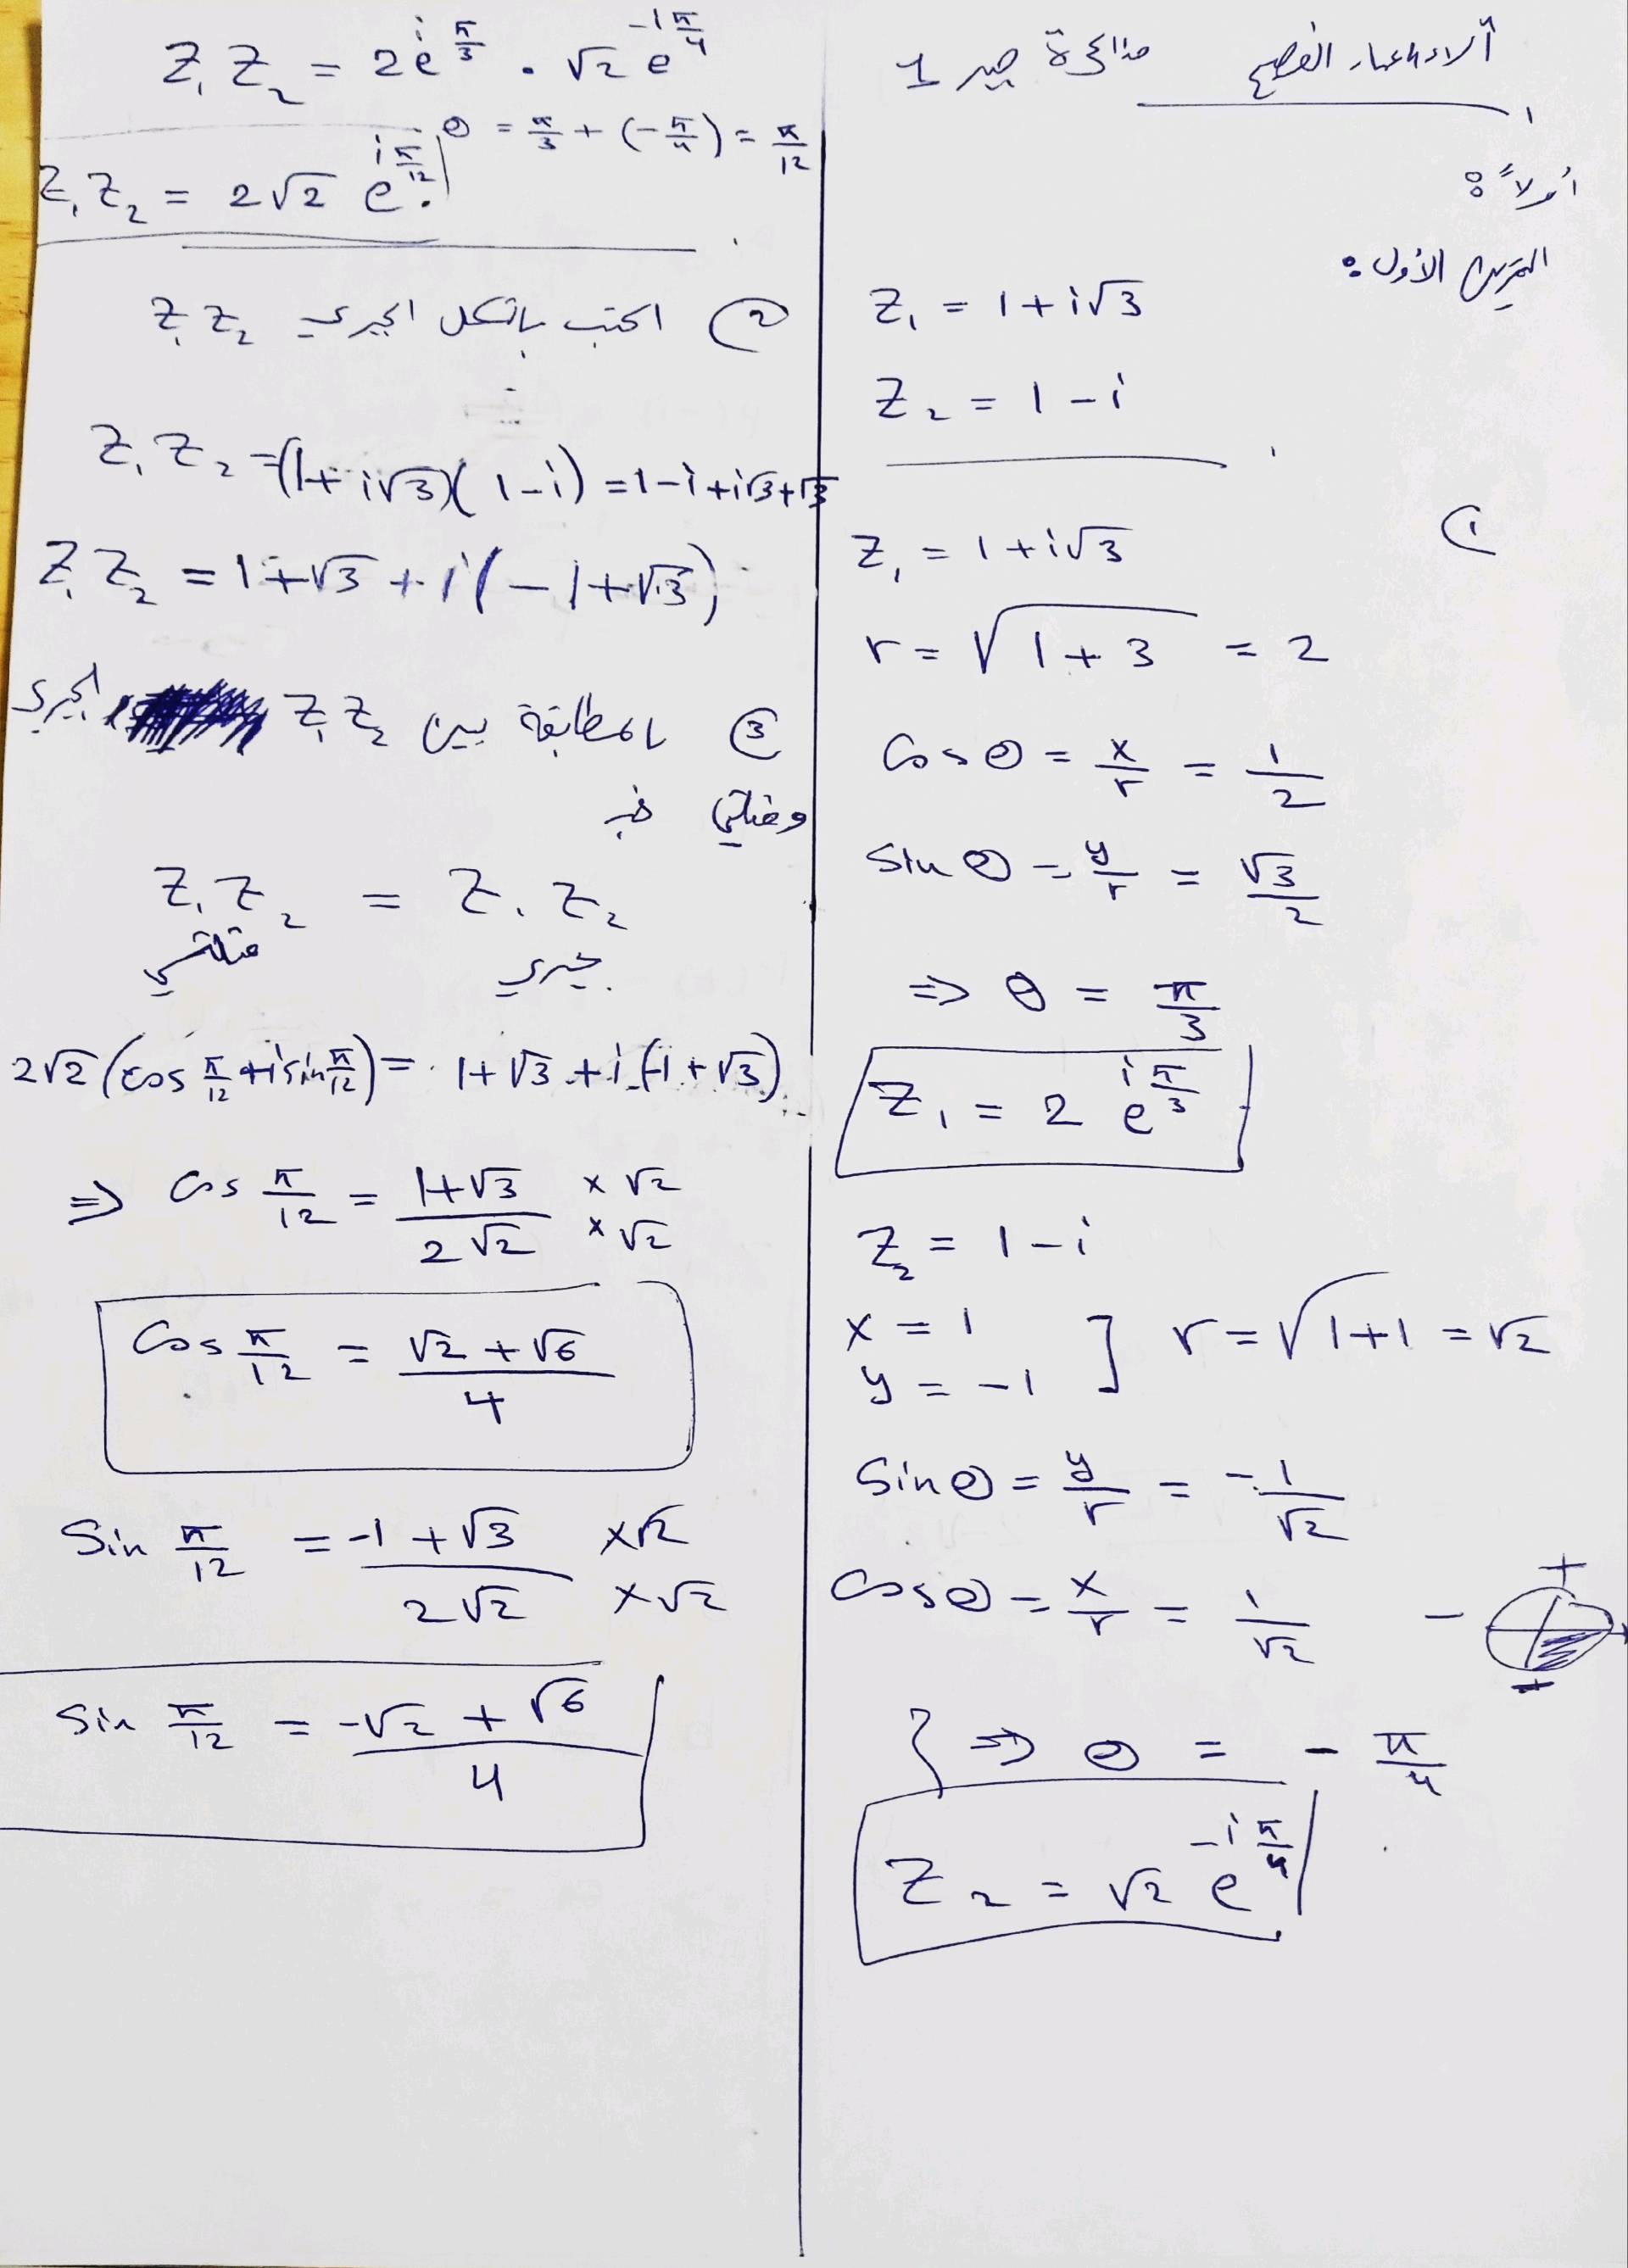 مذاكرة جبر 1
أولاً:
التمرين الأول:
Z₁ = 1 + i√3
Z₂ = 1 - i
1)
Z₁ = 1 + i√3
r = √(1 + 3) = 2
Cos θ = x/r = 1/2
Sin θ = y/r = √3/2
⇒ θ = π/3
Z₁ = 2 e^(i π/3)
Z₂ = 1 - i
x = 1
y = -1 ] r = √(1+1) = √2
Sin θ = y/r = -1/√2
Cos θ = x/r = 1/√2
- + +
} ⇒ θ = - π/4
Z₂ = √2 e^(-i π/4)
Z₁ Z₂ = 2 e^(i π/3) . √2 e^(-i π/4)
θ = π/3 + (-π/4) = π/12
Z₁ Z₂ = 2√2 e^(i π/12)
2) اكتب بالشكل الجبري Z₁ Z₂
Z₁ Z₂ = (1 + i√3)(1 - i) = 1 - i + i√3 + √3
Z₁ Z₂ = 1 + √3 + i(-1 + √3)
3) بالمطابقة بين Z₁ Z₂ الجبري
Z₁ Z₂ = Z₁ Z₂
مثلثي جبري
2√2 (cos π/12 + i sin π/12) = 1 + √3 + i(-1 + √3)
⇒ Cos π/12 = (1+√3)/(2√2) ×√2 ×√2
Cos π/12 = (√2 + √6)/4
Sin π/12 = (-1 + √3)/(2√2) ×√2 ×√2
Sin π/12 = (-√2 + √6)/4